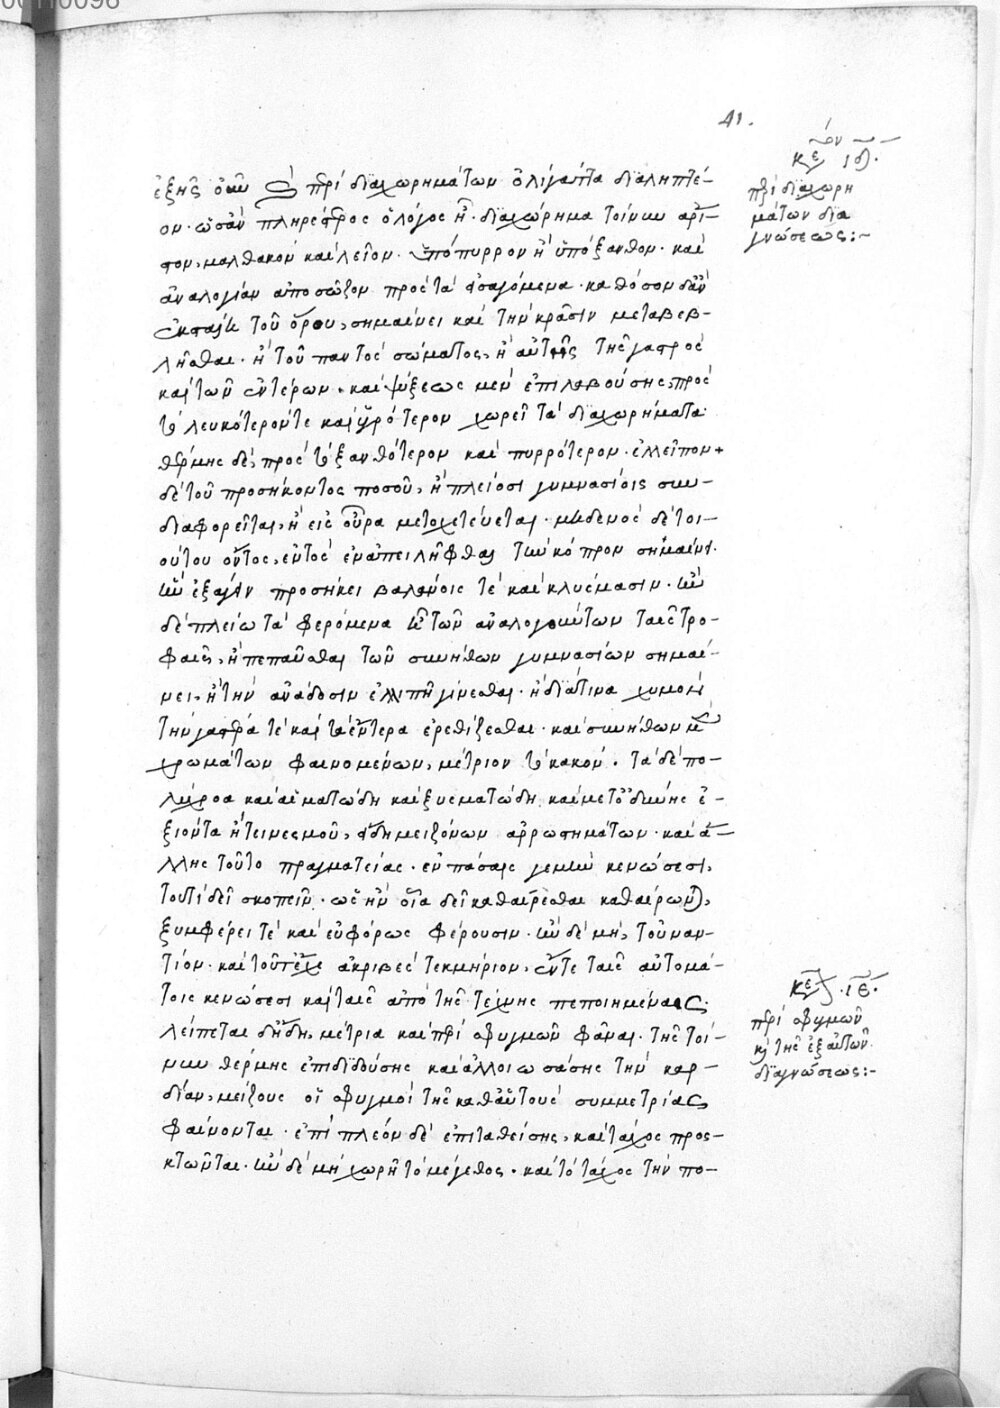 41.
κεφ ιδον.
ἑξῆς οὖν καὶ περὶ διαχωρημάτων ὀλίγα ἄττα διαληπτέ-
ον· ὡς ἂν πληρέστερος ὁ λόγος ᾖ· διαχώρημα τοίνυν ἄρι-
στον, μαλθακὸν καὶ λεῖον· ὑπόπυρρον ἢ ὑπόξανθον· καὶ
ἀναλογίαν ἀποσῶζον πρὸς τὰ ἐσαγόμενα· καθόσον δ' ἂν
ἐκσταίη τοῦ ὅρου, σημαίνει καὶ τὴν κρᾶσιν μεταβεβ-
λῆσθαι· ἢ τοῦ παντὸς σώματος, ἢ αὐτῆς τῆς γαστρὸς
καὶ τῶν ἐντέρων· καὶ ψύξεως μὲν ἐπιλαβούσης, πρὸς
τὸ λευκότερόν τε καὶ ὑγρότερον χωρεῖ τὰ διαχωρήματα·
θέρμης δὲ, πρὸς τὸ ξανθότερον καὶ πυρρότερον· ἐλλεῖπον
δὲ τοῦ προσήκοντος ποσοῦ, ἢ πλείοσι γυμνασίοις συν-
διαφορεῖται, ἢ εἰς οὖρα μετοχετεύεται· μηδενὸς δὲ τοι-
ούτου ὄντος, ἐντὸς ἐναπειλῆφθαι τὴν κόπρον σημαίνει·
ἣν ἐξάγειν προσήκει βαλάνοις τὲ καὶ κλύσμασιν· ἢν
δὲ πλείω τὰ φερόμενα ᾖ τῶν ἀναλογούντων ταῖς τρο-
φαῖς, ἢ πεπαῦσθαι τῶν συνήθων γυμνασίων σημαί-
νει, ἢ τὴν ἀνάδοσιν ἐλλιπῆ γίνεσθαι· ἢ διά τινα χυμὸν
τὴν γαστέρα τὲ καὶ τὰ ἔντερα ἐρεθίζεσθαι· καὶ συνήθων μὲν
χρωμάτων φαινομένων, μέτριον τὸ κακόν· τὰ δὲ πο-
λύχροα καὶ αἱματώδη καὶ ξυσματώδη, καὶ μετ' ὀδύνης ἐ-
ξιόντα ἢ τεινεσμοῦ, ἤδη μειζόνων ἀρρωστημάτων· καὶ ἄ-
λλης τοῦτο πραγματείας· ἐν πάσαις γε μὴν κενώσεσι,
τουτὶ δεῖ σκοπεῖν· ὡς ἢν οἷα δεῖ καθαίρεσθαι καθαίρωνται,
ξυμφέρει τὲ καὶ εὐφόρως φέρουσιν· ἢν δὲ μὴ, τοὐναν-
τίον· καὶ τοῦτ' ἔχε ἀκριβὲς τεκμήριον, ἔν τε ταῖς αὐτομά-
τοις κενώσεσι καὶ ταῖς ἀπὸ τῆς τέχνης πεποιημέναις·
λείπεται δ' ἤδη, μέτρια καὶ περὶ σφυγμῶν φᾶναι· τῆς τοί-
νυν θέρμης ἐπιδιδούσης καὶ ἀλλοιωσάσης τὴν καρ-
δίαν, μείζους οἱ σφυγμοὶ τῆς καθ' αὑτοὺς συμμετρίας
φαίνονται· ἐπὶ πλέον δὲ ἐπιταθείσης, καὶ τάχος προς-
κτῶνται· ἢν δὲ μὴ χωρῇ τὸ μέγεθος· καὶ τὸ τάχος τὴν πο-
περὶ διαχωρη
μάτων δια
γνώσεως:~
κεφ. ιε.
περὶ σφυγμῶν
κ τῆς ἐξ αὐτῶν
διαγνώσεως:~